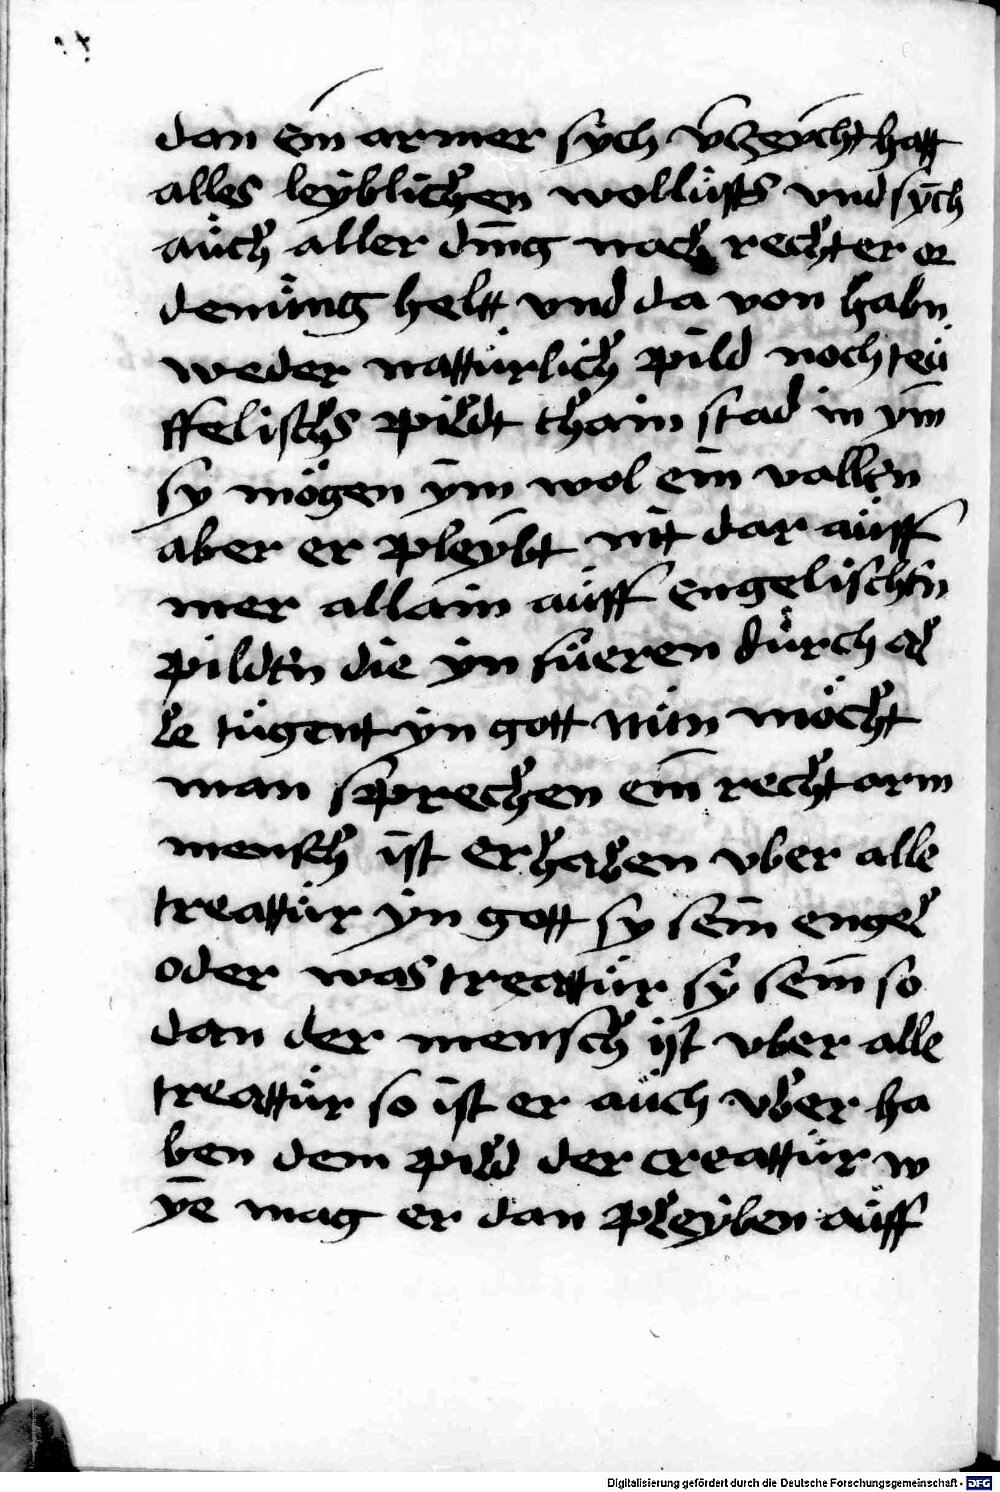 dan ein armer sych v̄czeycht hatt
alles leyblichen wollusts vnd sych
auch aller ding nach rechter or
denung helt vnd da von habn
weder natturlich pild noch teu
ffelischs pildt chain stad in ym
sy mögen ym wol ein vallen
aber er pleybt nit dar auff
mer allain auff engelischen
pildtn die yn fueren durch al
le tugent yn gott Nun möcht
man sprechen ein recht arm
mensch ist erhaben vber alle
creattur yn gott sy sein engel
oder was creattur sy sein so
dan der mensch ist vber alle
creattur so ist er auch vber ha
ben dem pild der creattur w
ye mag er dan pleyben auff
Digitalisierung gefördert durch die Deutsche Forschungsgemeinschaft - DFG